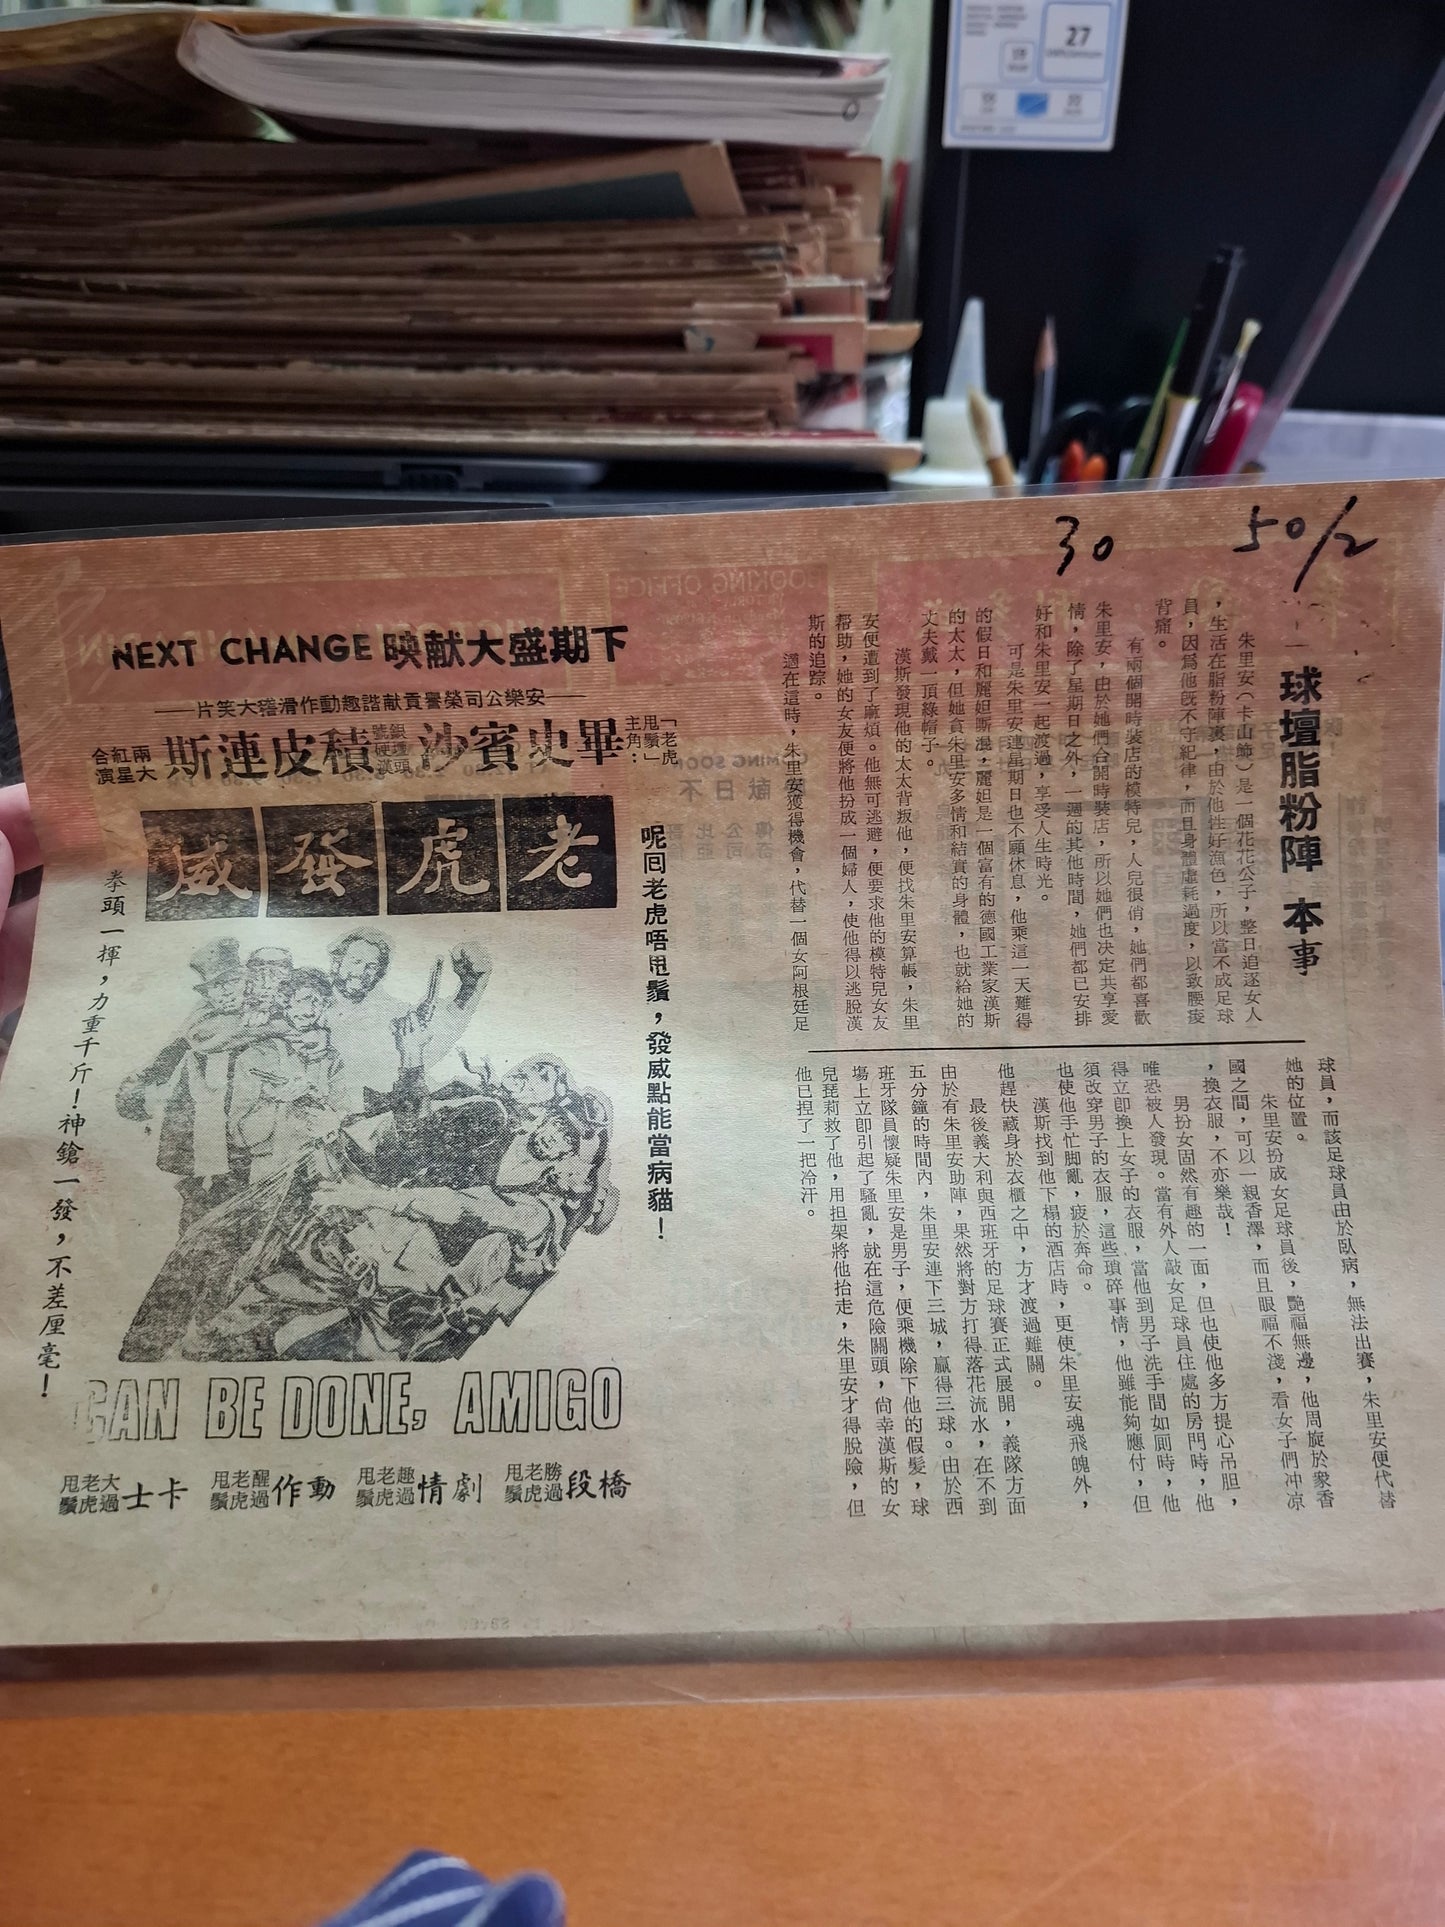 27
30
50/2
球壇脂粉陣 本事
朱里安（卡山飾）是一個花花公子，整日追逐女人
，生活在脂粉陣裏，由於他性好漁色，所以當不成足球
員，因為他既不守紀律，而且身體虛耗過度，以致腰痠
背痛。
有兩個開時裝店的模特兒，人兒很俏，她們都喜歡
朱里安，由於她們合開時裝店，所以她們也决定共享愛
情，除了星期日之外，一週的其他時間，她們都已安排
好和朱里安一起渡過，享受人生時光。
可是朱里安連星期日也不願休息，他乘這一天難得
的假日和麗妲斷混，麗妲是一個富有的德國工業家漢斯
的太太，但她貪朱里安多情和結實的身體，也就給她的
丈夫戴一頂綠帽子。
漢斯發現他的太太背叛他，便找朱里安算帳，朱里
安便遭到了麻煩。他無可逃避，便要求他的模特兒女友
帮助，她的女友便將他扮成一個婦人，使他得以逃脫漢
斯的追踪。
適在這時，朱里安獲得機會，代替一個女阿根廷足
球員，而該足球員由於臥病，無法出賽，朱里安便代替
她的位置。
朱里安扮成女足球員後，艷福無邊，他周旋於衆香
國之間，可以一親香澤，而且眼福不淺，看女子們冲凉
，換衣服，不亦樂哉！
男扮女固然有趣的一面，但也使他多方提心吊胆，
唯恐被人發現。當有外人敲女足球員住處的房門時，他
得立卽換上女子的衣服，當他到男子洗手間如厠時，他
須改穿男子的衣服，這些瑣碎事情，他雖能夠應付，但
也使他手忙脚亂，疲於奔命。
漢斯找到他下榻的酒店時，更使朱里安魂飛魄外，
他趕快藏身於衣櫃之中，方才渡過難關。
最後義大利與西班牙的足球賽正式展開，義隊方面
由於有朱里安助陣，果然將對方打得落花流水，在不到
五分鐘的時間內，朱里安連下三城，贏得三球。由於西
班牙隊員懷疑朱里安是男子，便乘機除下他的假髮，球
塲上立卽引起了騷亂，就在這危險關頭，尙幸漢斯的女
兒琵莉救了他，用担架將他抬走，朱里安才得脫險，但
他已捏了一把冷汗。
NEXT CHANGE 映献大盛期下
片笑大稽滑作動趣諧献貢譽榮司公樂安
「老虎
甩鬚」
主角：
畢史賓沙
銀壇硬漢
號頭
積皮連斯
兩大
紅星
合演
老虎發威
呢囘老虎唔甩鬚，發威點能當病貓！
拳頭一揮，力重千斤！神鎗一發，不差厘毫！
CAN BE DONE, AMIGO
橋段勝過老虎甩鬚
劇情趣過老虎甩鬚
動作醒過老虎甩鬚
卡士大過老虎甩鬚